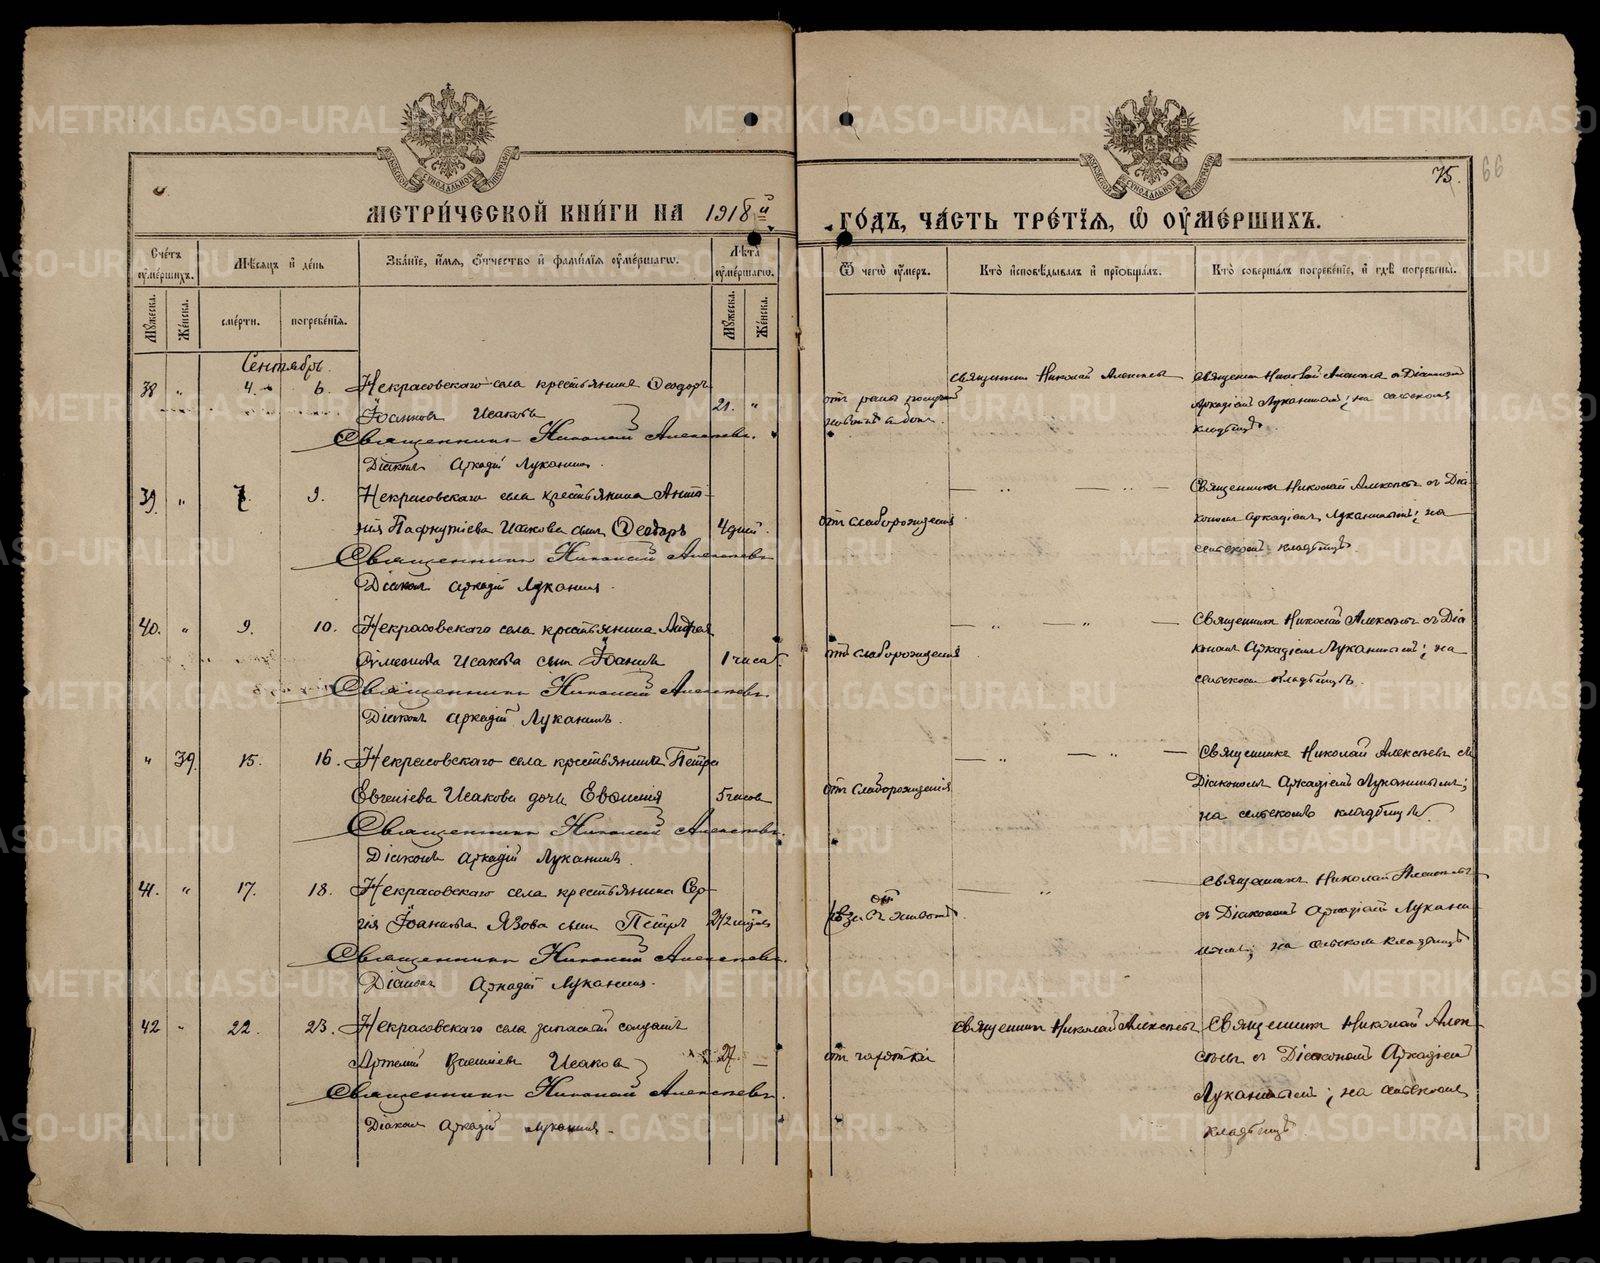 МЕТРИ́ЧЕСКОЙ КНИ́ГИ НА 1918й ГО́ДЪ, ЧА́СТЬ ТРЕ́ТІЯ, Ѡ ОУМЕ́РШИХЪ.
75.
66
Сче́тъ оуме́ршихъ.
Мѣ́сяцъ и де́нь
Зва́ніе, и́мя, о́тчество и фами́лія оуме́ршагѡ.
Лѣ́та оуме́ршагѡ.
Ѿ чегѡ̀ оу́меръ.
Кто̀ исповѣ́дывалъ и пріобща́лъ.
Кто̀ соверша́лъ погребе́ніе, и гдѣ̀ погребены̀.
Мꙋ́жеска.
Же́нска.
сме́рти.
погребе́нія.
Мꙋ́жеска.
Же́нска.
Сентябрь.
38 " 4. 6. Некрасовскаго села крестьянинъ Ѳеодоръ
Іоанновъ Исаковъ 21. "
Священникъ Николай Алексѣевъ.
Діаконъ Аркадій Луканинъ.
отъ раны
Священникъ Николай Алексѣевъ
Священникъ Николай Алексѣевъ съ Діакономъ
Аркадіемъ Луканинымъ; на сельскомъ
кладбищѣ.
39. " 7. 9. Некрасовскаго села крестьянина Анто-
нія Пафнутіева Исакова сынъ Ѳеодоръ 4 дней.
Священникъ Николай Алексѣевъ
Діаконъ Аркадій Луканинъ.
отъ слаборожденія
— " — " —
Священникъ Николай Алексѣевъ съ Діа-
кономъ Аркадіемъ Луканинымъ; на
сельскомъ кладбищѣ.
40. " 9. 10. Некрасовскаго села крестьянина Андрея
Сѵмеонова Исакова сынъ Іоаннъ 1 часа.
Священникъ Николай Алексѣевъ.
Діаконъ Аркадій Луканинъ.
отъ слаборожденія
— " — " —
Священникъ Николай Алексѣевъ съ Діа-
кономъ Аркадіемъ Луканинымъ; на
сельскомъ кладбищѣ.
" 39. 15. 16. Некрасовскаго села крестьянина Петра
Евгеніева Исакова дочь Евѳимія 5 часов
Священникъ Николай Алексѣевъ.
Діаконъ Аркадій Луканинъ.
отъ слаборожденія
— " — " —
Священникъ Николай Алексѣевъ съ
Діакономъ Аркадіемъ Луканинымъ;
на сельскомъ кладбищѣ.
41. " 17. 18. Некрасовскаго села крестьянина Сер-
гія Іоаннова Язова сынъ Петръ 2 1/2
Священникъ Николай Алексѣевъ.
Діаконъ Аркадій Луканинъ.
отъ
рѣзи въ животѣ.
— " —
Священникъ Николай Алексѣевъ
съ Діакономъ Аркадіемъ Лукани-
нымъ; на сельскомъ кладбищѣ
42 " 22. 23. Некрасовскаго села запасный солдатъ
Артемій Василіевъ Исаков 27. —
Священникъ Николай Алексѣевъ.
Діаконъ Аркадій Луканинъ.
отъ чахотки
Священникъ Николай Алексѣевъ
Священникъ Николай Алек-
сѣевъ съ Діакономъ Аркадіемъ
Луканинымъ; на сельскомъ
кладбищѣ.
METRIKI.GASO-URAL.RU